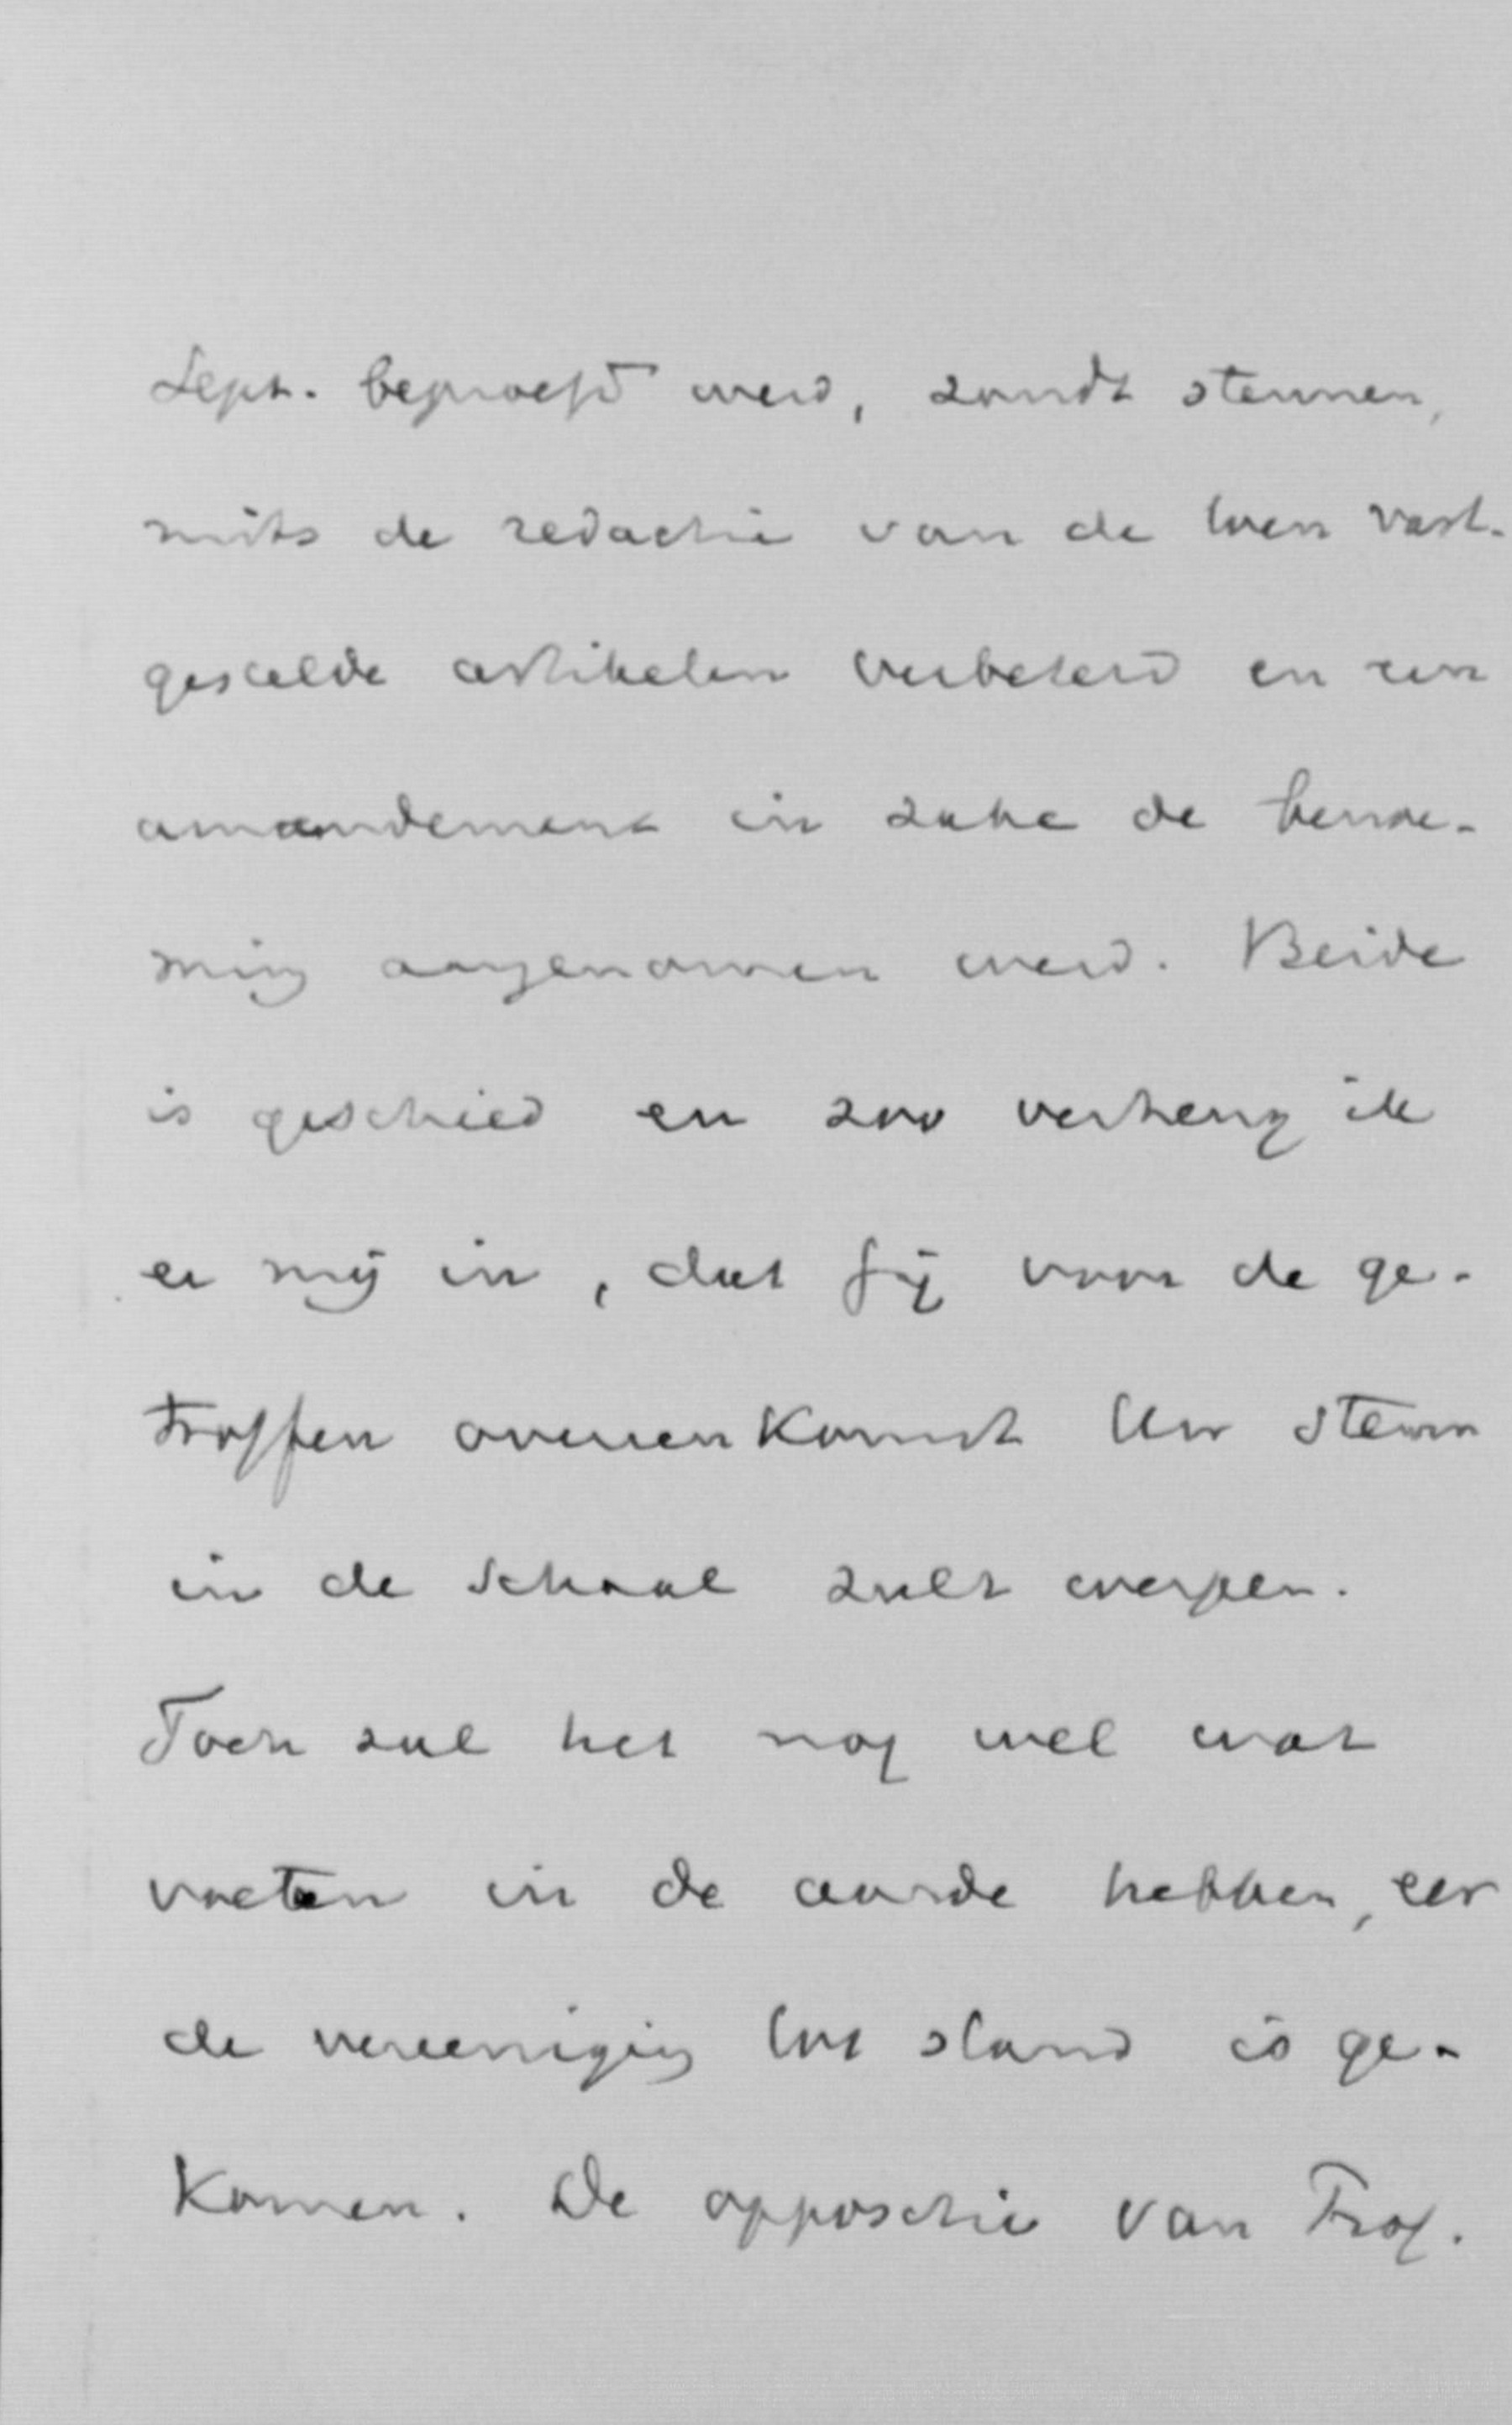 Sept. beproefd werd, zoudt stemmen,
mits de redactie van de toen vast-
gestelde artikelen verbeterd en een
amandement in zake de benoe-
ming aangenomen werd. Beide
is geschied en zoo verheug ik
er mij in, dat gij voor de ge-
troffen overeenkomst Uw stem
in de schaal zult werpen.
Toch zal het nog wel wat
voeten in de aarde hebben, eer
de vereeniging tot stand is ge-
komen. De oppositie van Prof.